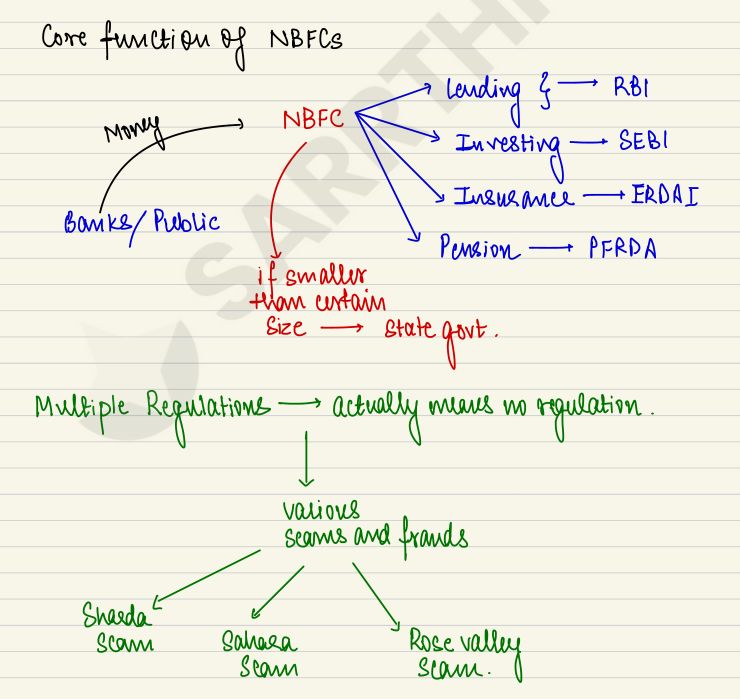 Core function of NBFCs
Money
Banks/Public
NBFC
Lending } → RBI
Investing → SEBI
Insurance → ERDAI
Pension → PFRDA
if smaller
than certain
Size → State govt.
Multiple Regulations → actually means no regulation.
various
scams and frauds
Sharda
Scam
Sahara
Scam
Rose valley
Scam.
SARRTHI